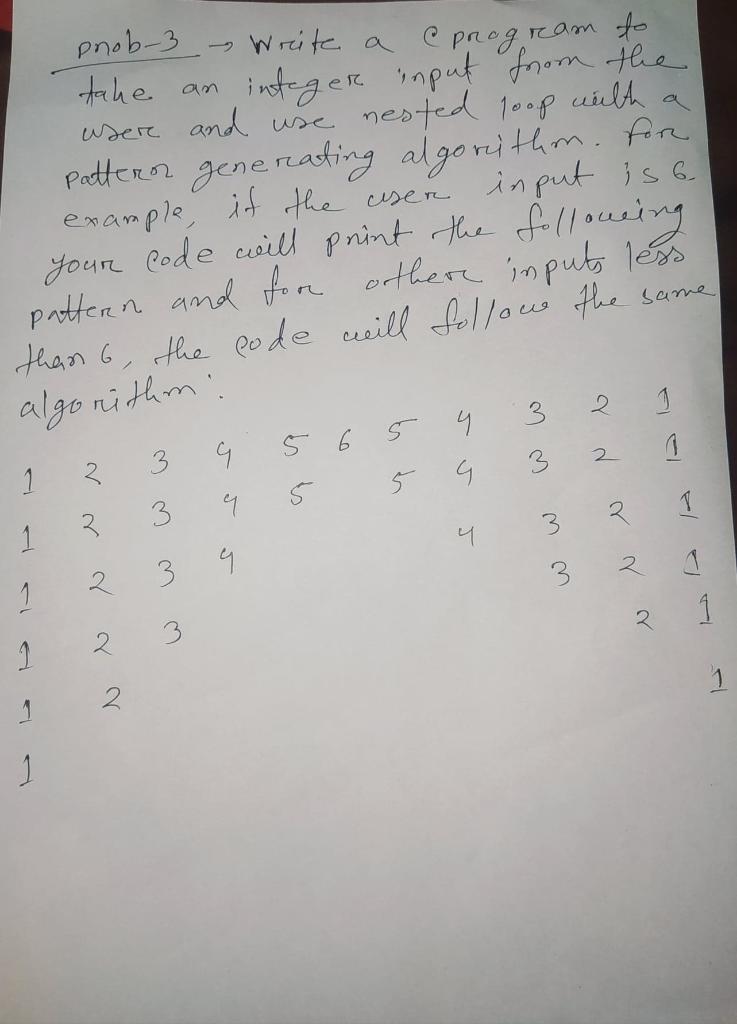 prob-3 → Write a C program to
take an integer input from the
user and use nested loop with a
pattern generating algorithm. For
example, if the user input is 6
your code will print the following
pattern and for other inputs less
than 6, the code will follow the same
algorithm:
1 2 3 4 5 6 5 4 3 2 1
1 2 3 4 5 5 4 3 2 1
1 2 3 4 4 3 2 1
1 2 3 3 2 1
1 2 2 1
1 1